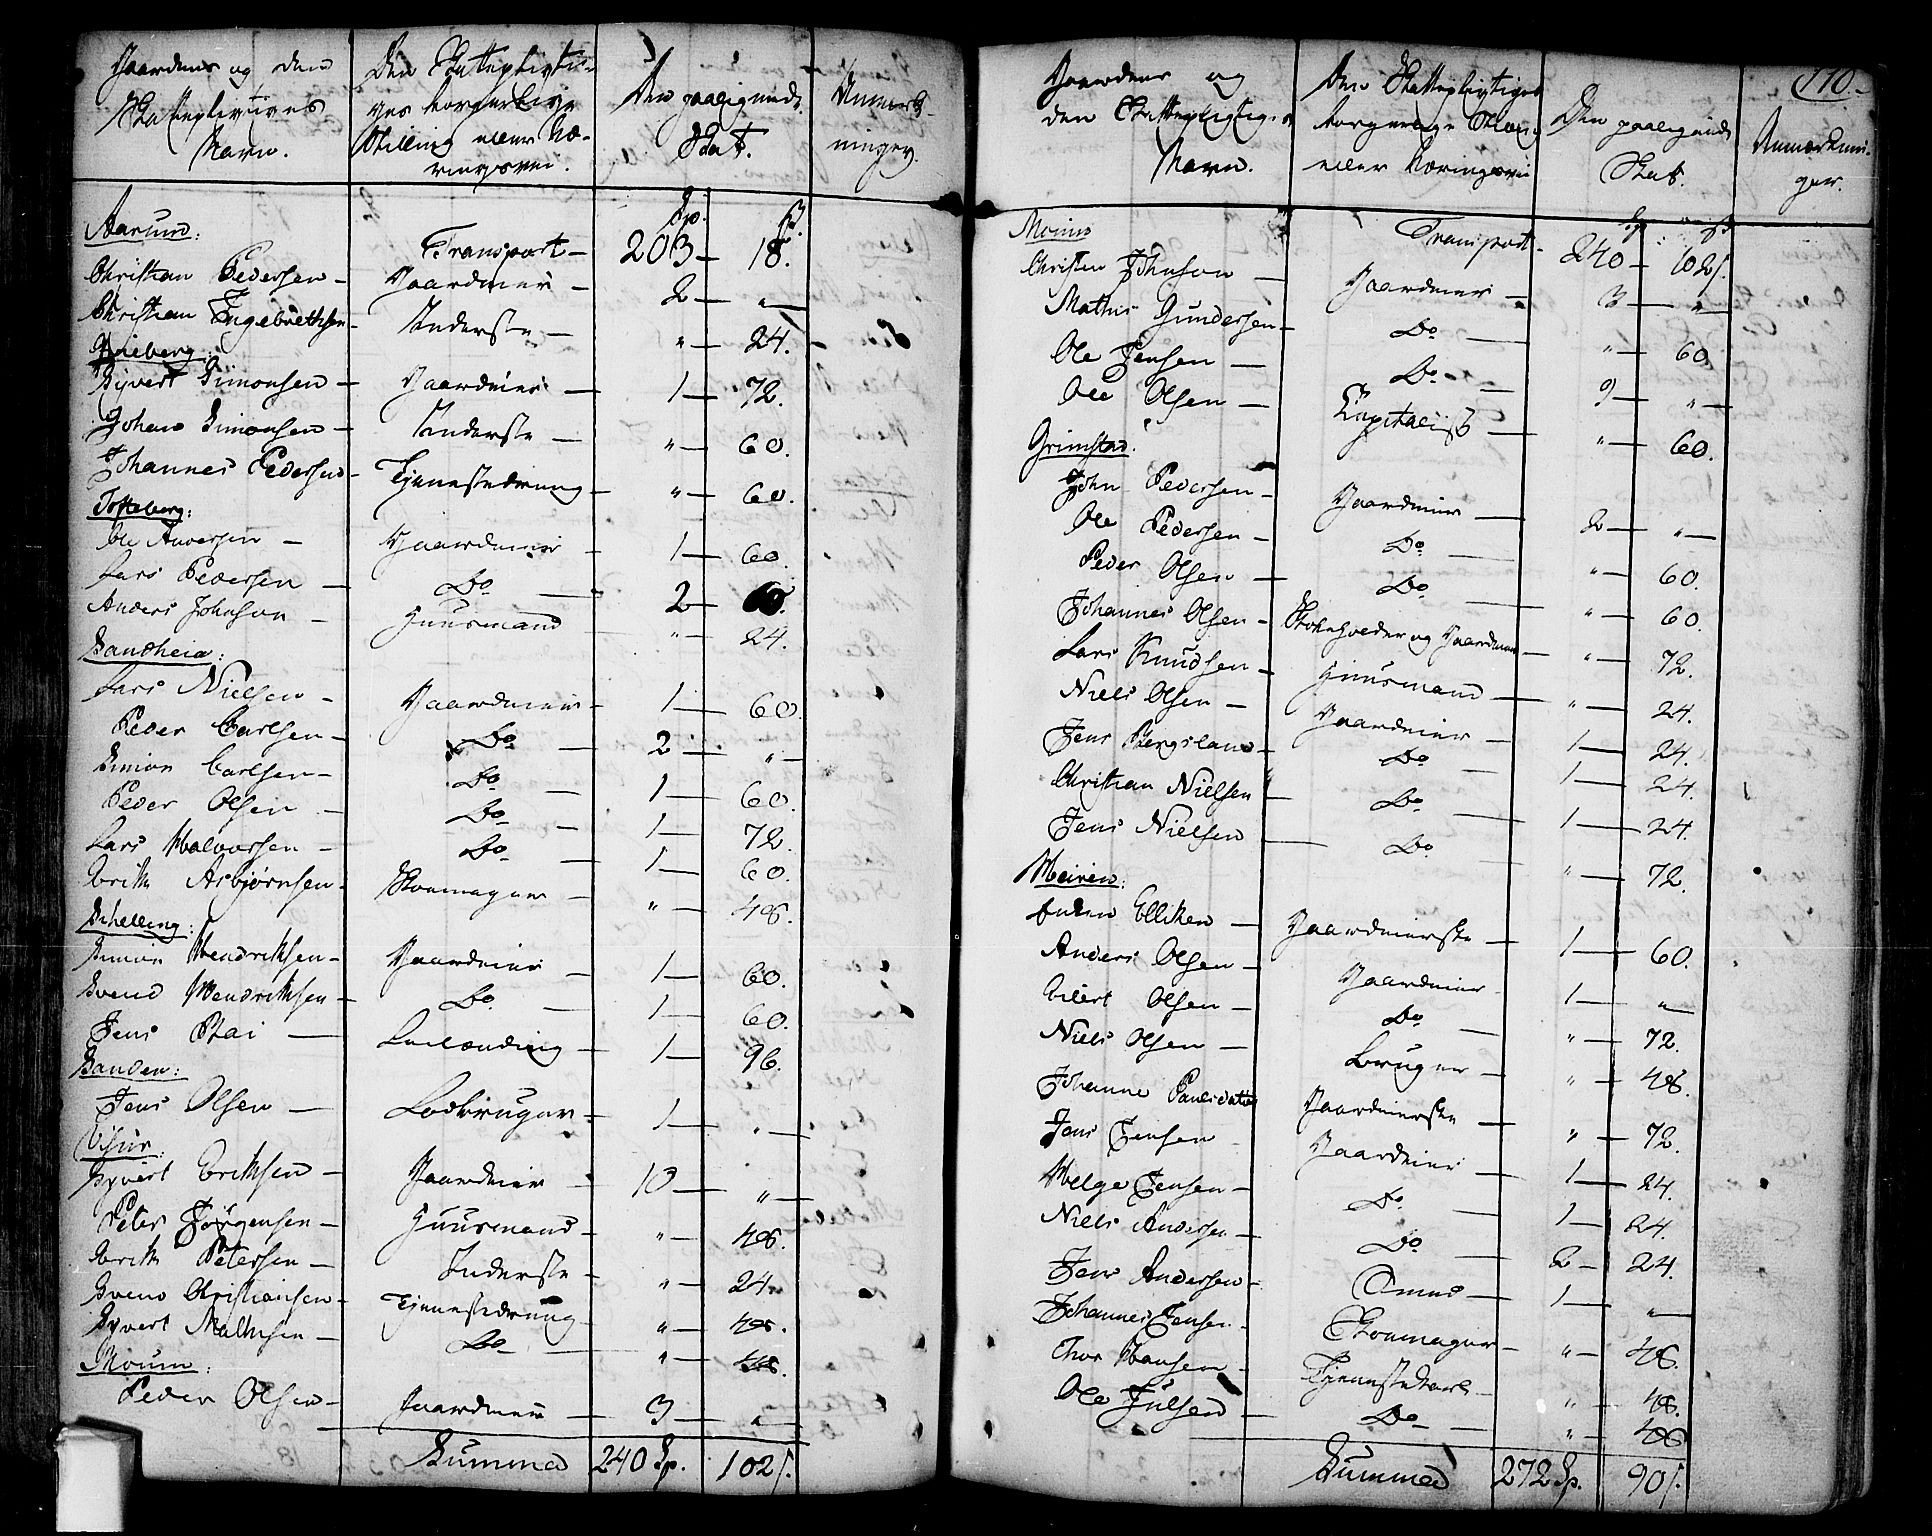 Gaardens og den
Skattepligtiges
Navn.
Den Skattepligti-
ges borgerlige
Stilling eller Næ-
ringsvei.
Den paalignede
Skat.
Anmærk-
ninger.
Aarum:
Sp. ß.
Transport – 203 – 18.
Christian Pedersen – Gaardeier – 2 – "
Christian Ingebrethsen – Inderste – " – 24.
Syvert Simonsen – Gaardeier – 1 – 72.
Johan Simonsen – Inderste – " – 60.
Johannes Pedersen – Tjenestedreng – " – 60.
Tofteberg:
Ole Andersen – Gaardeier – 1 – 60.
Lars Pedersen – Do – 2 –
Anders Johnson – Huusmand – " – 24.
Sandheia:
Lars Nielsen – Gaardeier – 1 – 60.
Peder Carlsen – Do – 2 – "
Simon Carlsen – Do – 1 – 60.
Peder Olsen – Do – 1 – 72.
Lars Halvorsen – Do – 1 – 60.
Erik Asbjørnsen – Skomager – " – 48.
Schelling:
Simon Hendriksen – Gaardeier – 1 – 60.
Svend Hendriksen – Do – 1 – 60.
Jens – 1 – 96.
Sanden:
Jens Olsen – Lodbruger – 1 – "
Viker:
Syvert Eriksen – Gaardeier – 10 – "
Peter Jørgensen – Huusmand – " – 48.
Erik Petersen – Inderste – " – 24.
Svend Christiansen – Tjenestedreng – " – 48.
Syvert Mathisen – Do – " – 48.
Moum:
Peder Olsen – Gaardeier – 3 – "
Summa 240 Sp. 102 ß.
170.
Gaardens og
den Skattepligtiges
Navn.
Den Skattepligtiges
borgerlige Stilling
eller Næringsvei
Den paalignede
Skat.
Anmærknin-
ger.
Moum
Sp. ß
Transport – 240 – 102 ß.
Christen Johnson – Gaardeier – 3 – "
Mathis Gundersen – Do – " – 60.
Ole Jensen – Do – 9 – "
Ole Olsen – Capitalist – " – 60.
Grimstad:
John Pedersen – Gaardeier – 2 – "
Ole Pedersen – Do – " – 60.
Peder Olsen – Do – " – 60.
Johannes Olsen – og Gaardmand – " – 72.
Lars Knudsen – Huusmand – " – 24.
Niels Olsen – Gaardeier – 1 – 24.
Jens Bergsland – Do – 1 – 24.
Christian Nielsen – Do – 1 – 24.
Jens Nielsen – Do – " – 72.
Enken Elliken – Gaardeierske – 1 – 60.
Anders Olsen – Gaardeier – 1 – "
Eilert Olsen – Do – " – 72.
Niels Olsen – Bruger – " – 48.
Johanne Paulsdatter Gaardeierske – " – 72.
Jens Jensen – Gaardeier – 1 – 24.
Helge Jensen – Do – 1 – 24.
Niels Andersen – Do – 2 – 24.
Jens Andersen – Smed – 1 – "
Johannes Jensen – Skomager – " – 48.
Thor Hansen – Tjenestekarl – " – 48.
Ole Julsen – Do – " – 48
Summa 272 Sp. 90 ß.